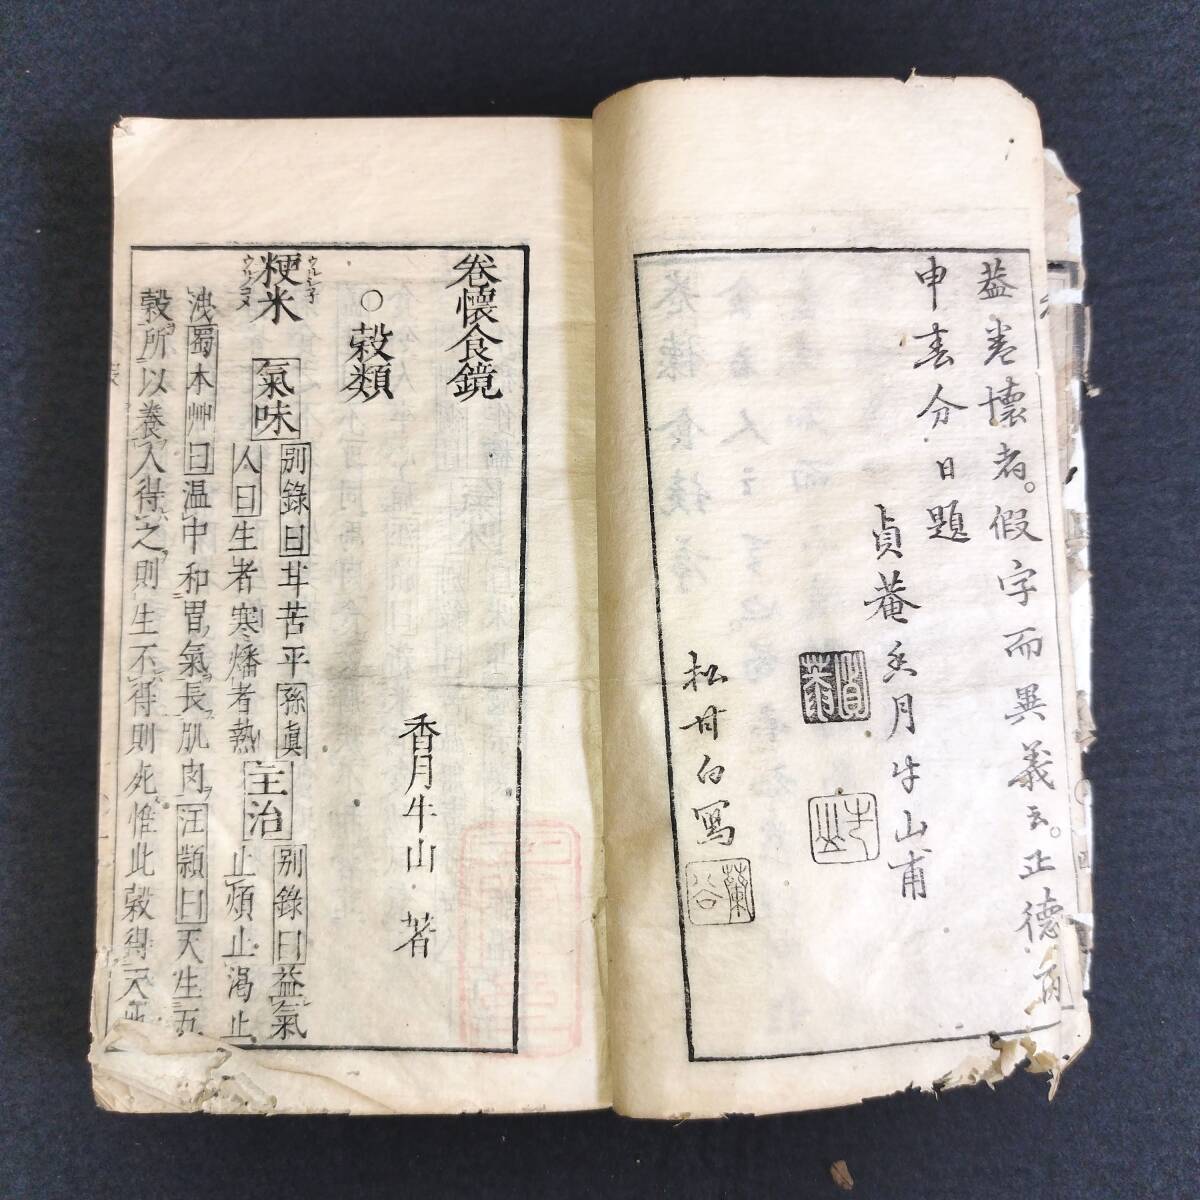 葢巻懐者。假字而異義云。正德丙
申春分日題
貞菴香月牛山甫
貞菴
牛山
松井白寫
蘭谷
卷懷食鏡
香月牛山 著
○穀類
粳米 ウルシ子 ウルゴメ 氣味 別錄曰甘苦平孫眞
人曰生者寒燔者熱 主治 別錄曰益氣
止煩止渴止
洩蜀本艸曰温中和胃氣長肌肉汪穎曰天生五
穀所以養人得之則生不得則死惟此穀得天